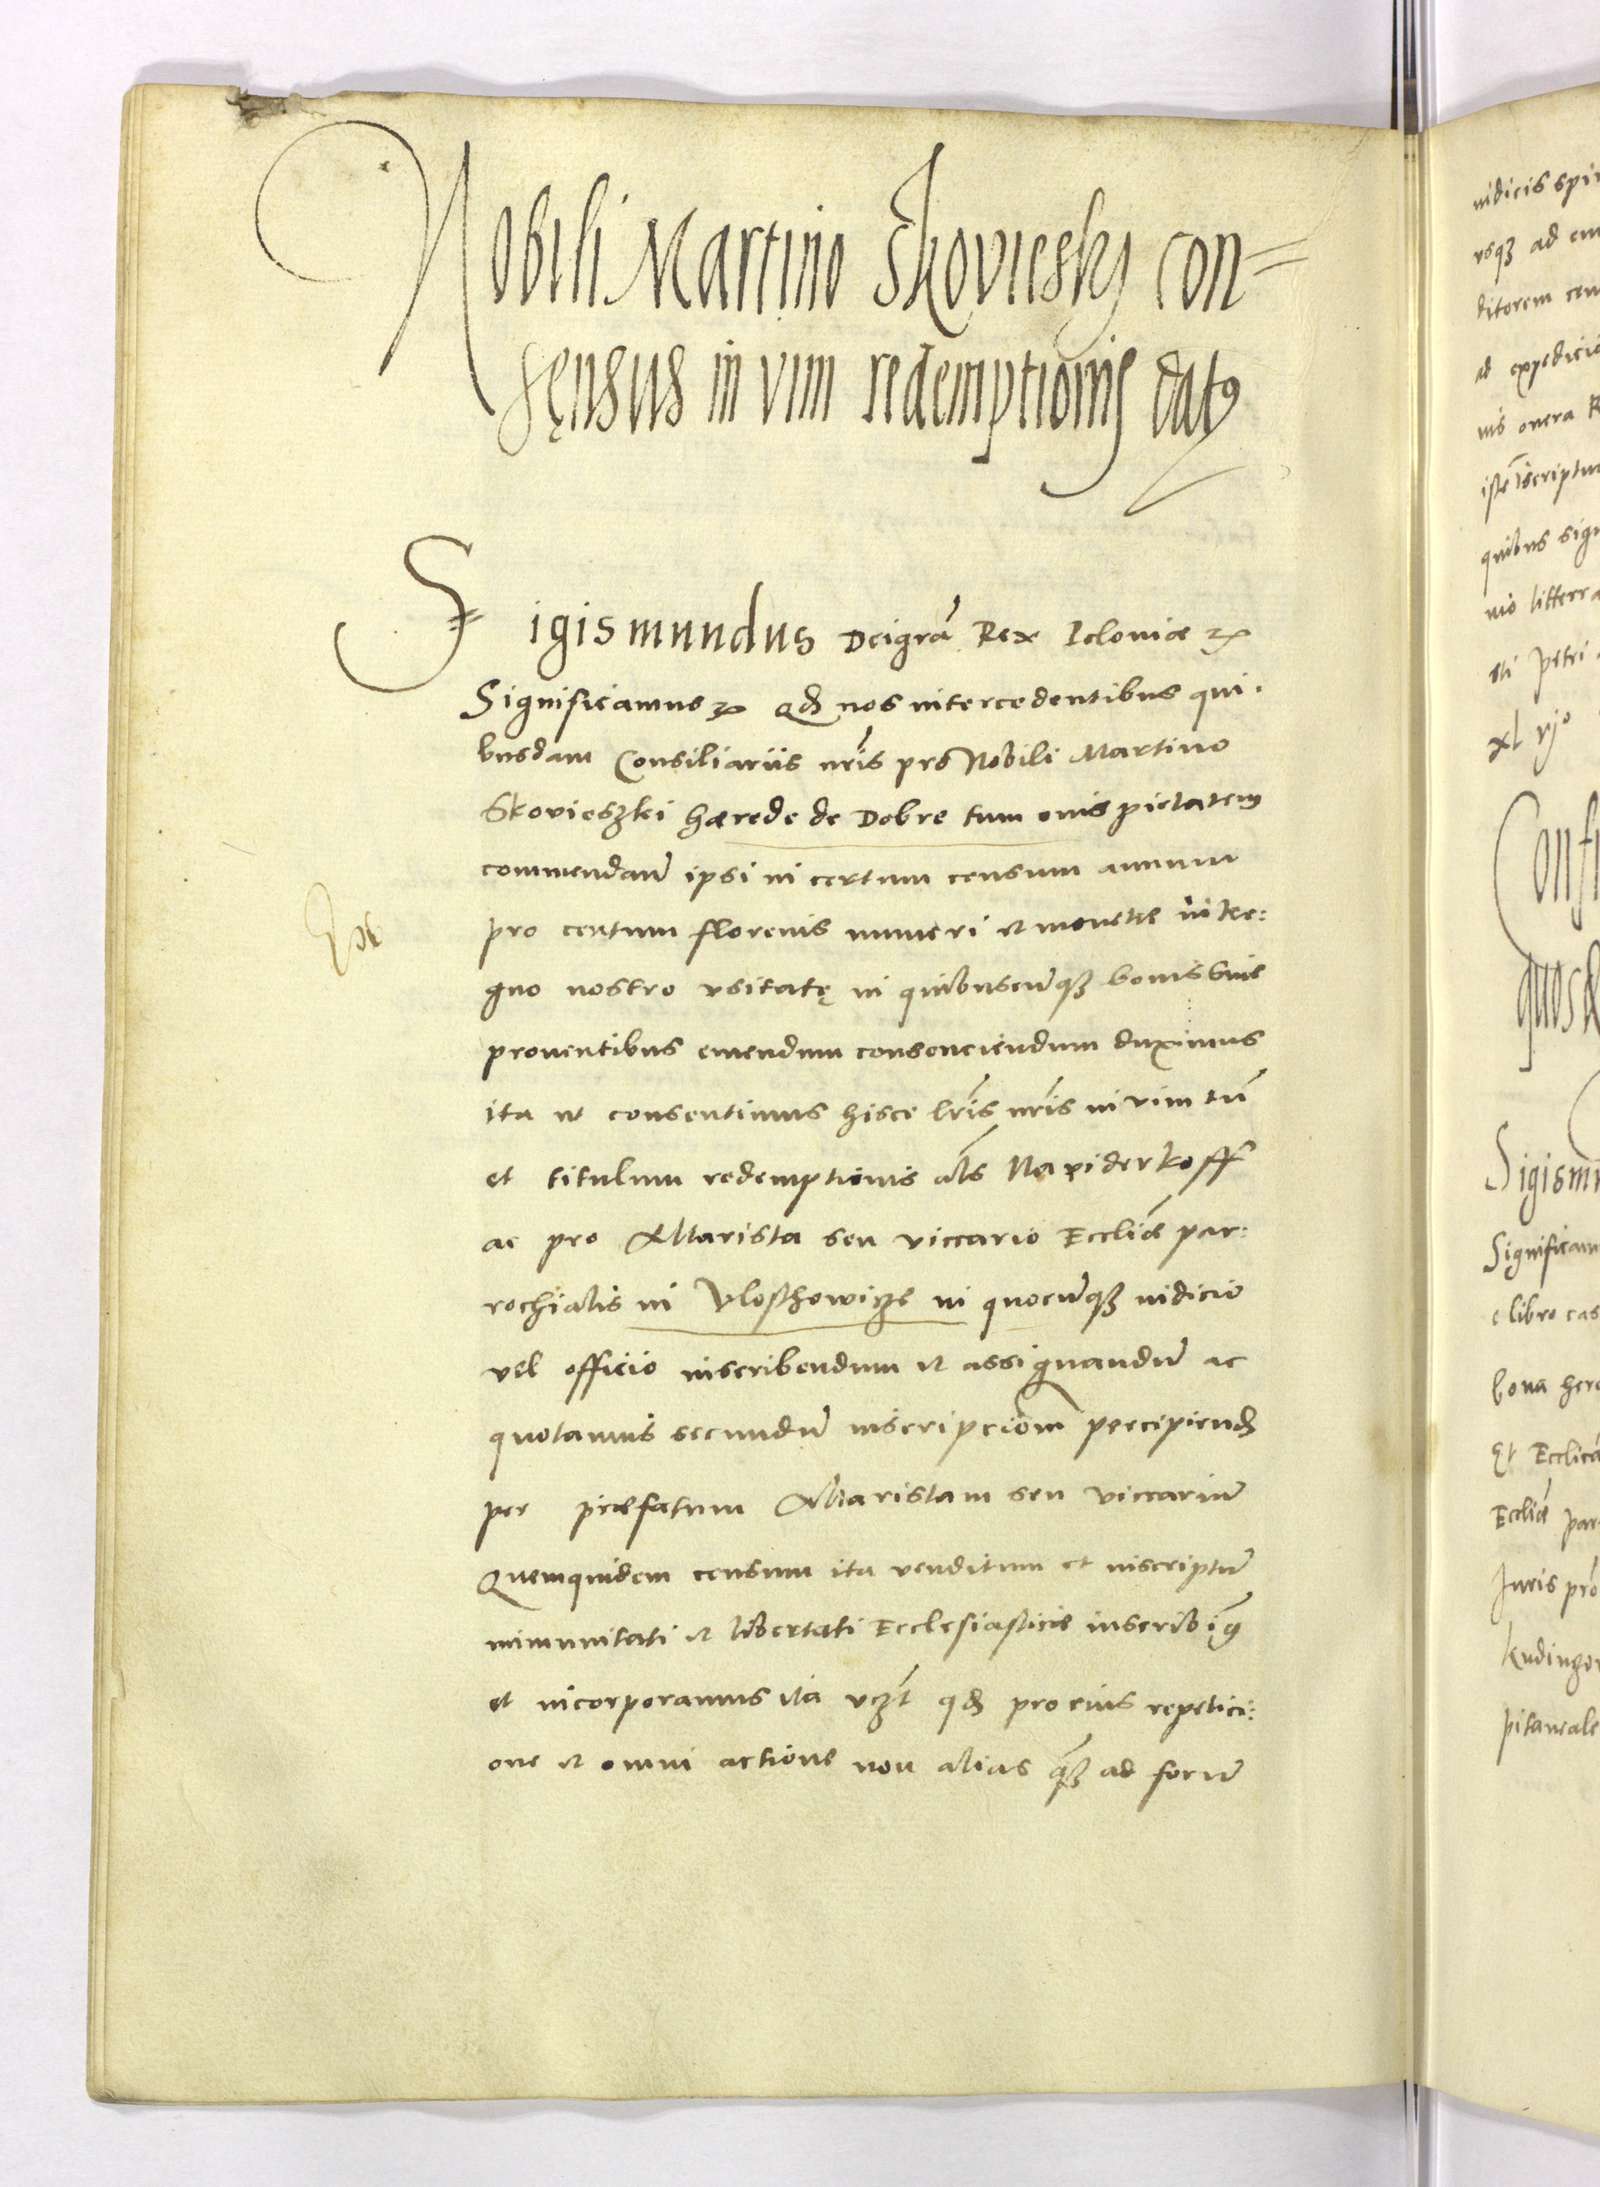 Nobili Martino Skovieskj con=
sęnsus in vim redemptionis datꝯ
Sigismundus Dei grã Rex Poloniæ ꝛc
Significamus ꝛc Qđ nos intercedentibus qui.
busdam Consiliariis nr̃is pro Nobili Martino
Skovieszki hærede de Dobre tum eius pietatem
commendan̄ ipsi in certum censum annuum
pro centum florenis numeri et monetæ in Re:
gno nostro vsitatę in quibuscunqꝫ bonis siue
prouentibus emendum consenciendum duximus
ita vt consentimus hisce lr̃is nr̃is in vim tm̃
et titulum redemptionis al̃s Na viderkoff
ac pro Altarista seu viccario Eccliæ par:
rochialis in Vlosthowicze in quocunqꝫ iudicio
vel officio inscribendum et assignandum̄ ac
quotannis secundum̄ inscripcionem percipiend
per præfatum Altaristam seu viccarium̄
Quemquidem censum ita venditum et inscriptum̄
immunitati et libertati Ecclesiasticæ inscribimꝯ
et incorporamus ita vcꝫt qđ pro eius repetici:
one et omni actione non alias qꝫ ad forum̄
iudicis
vsqꝫ ad
ditorem
ad
nis onera
quibus
sti Petri
xl vjº
Significam
e libro
bona
Et
Eccliæ par
Juris